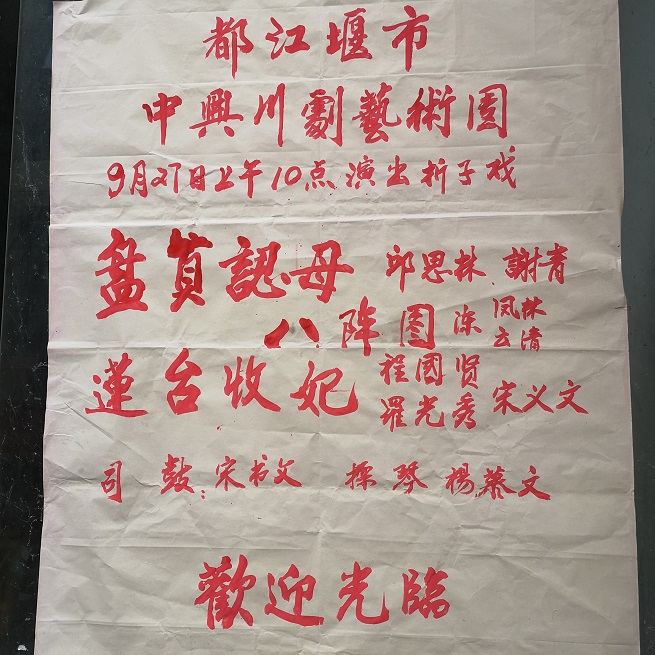 都江堰市
中興川劇藝術團
9月27日上午10点演出折子戏
盘貞認母 邱思林、謝青
八阵图 涂 凤林 云清
蓮台收妃 程國贤 羅光秀 宋义文
司鼓：宋书文 操琴 楊慕文
歡迎光臨